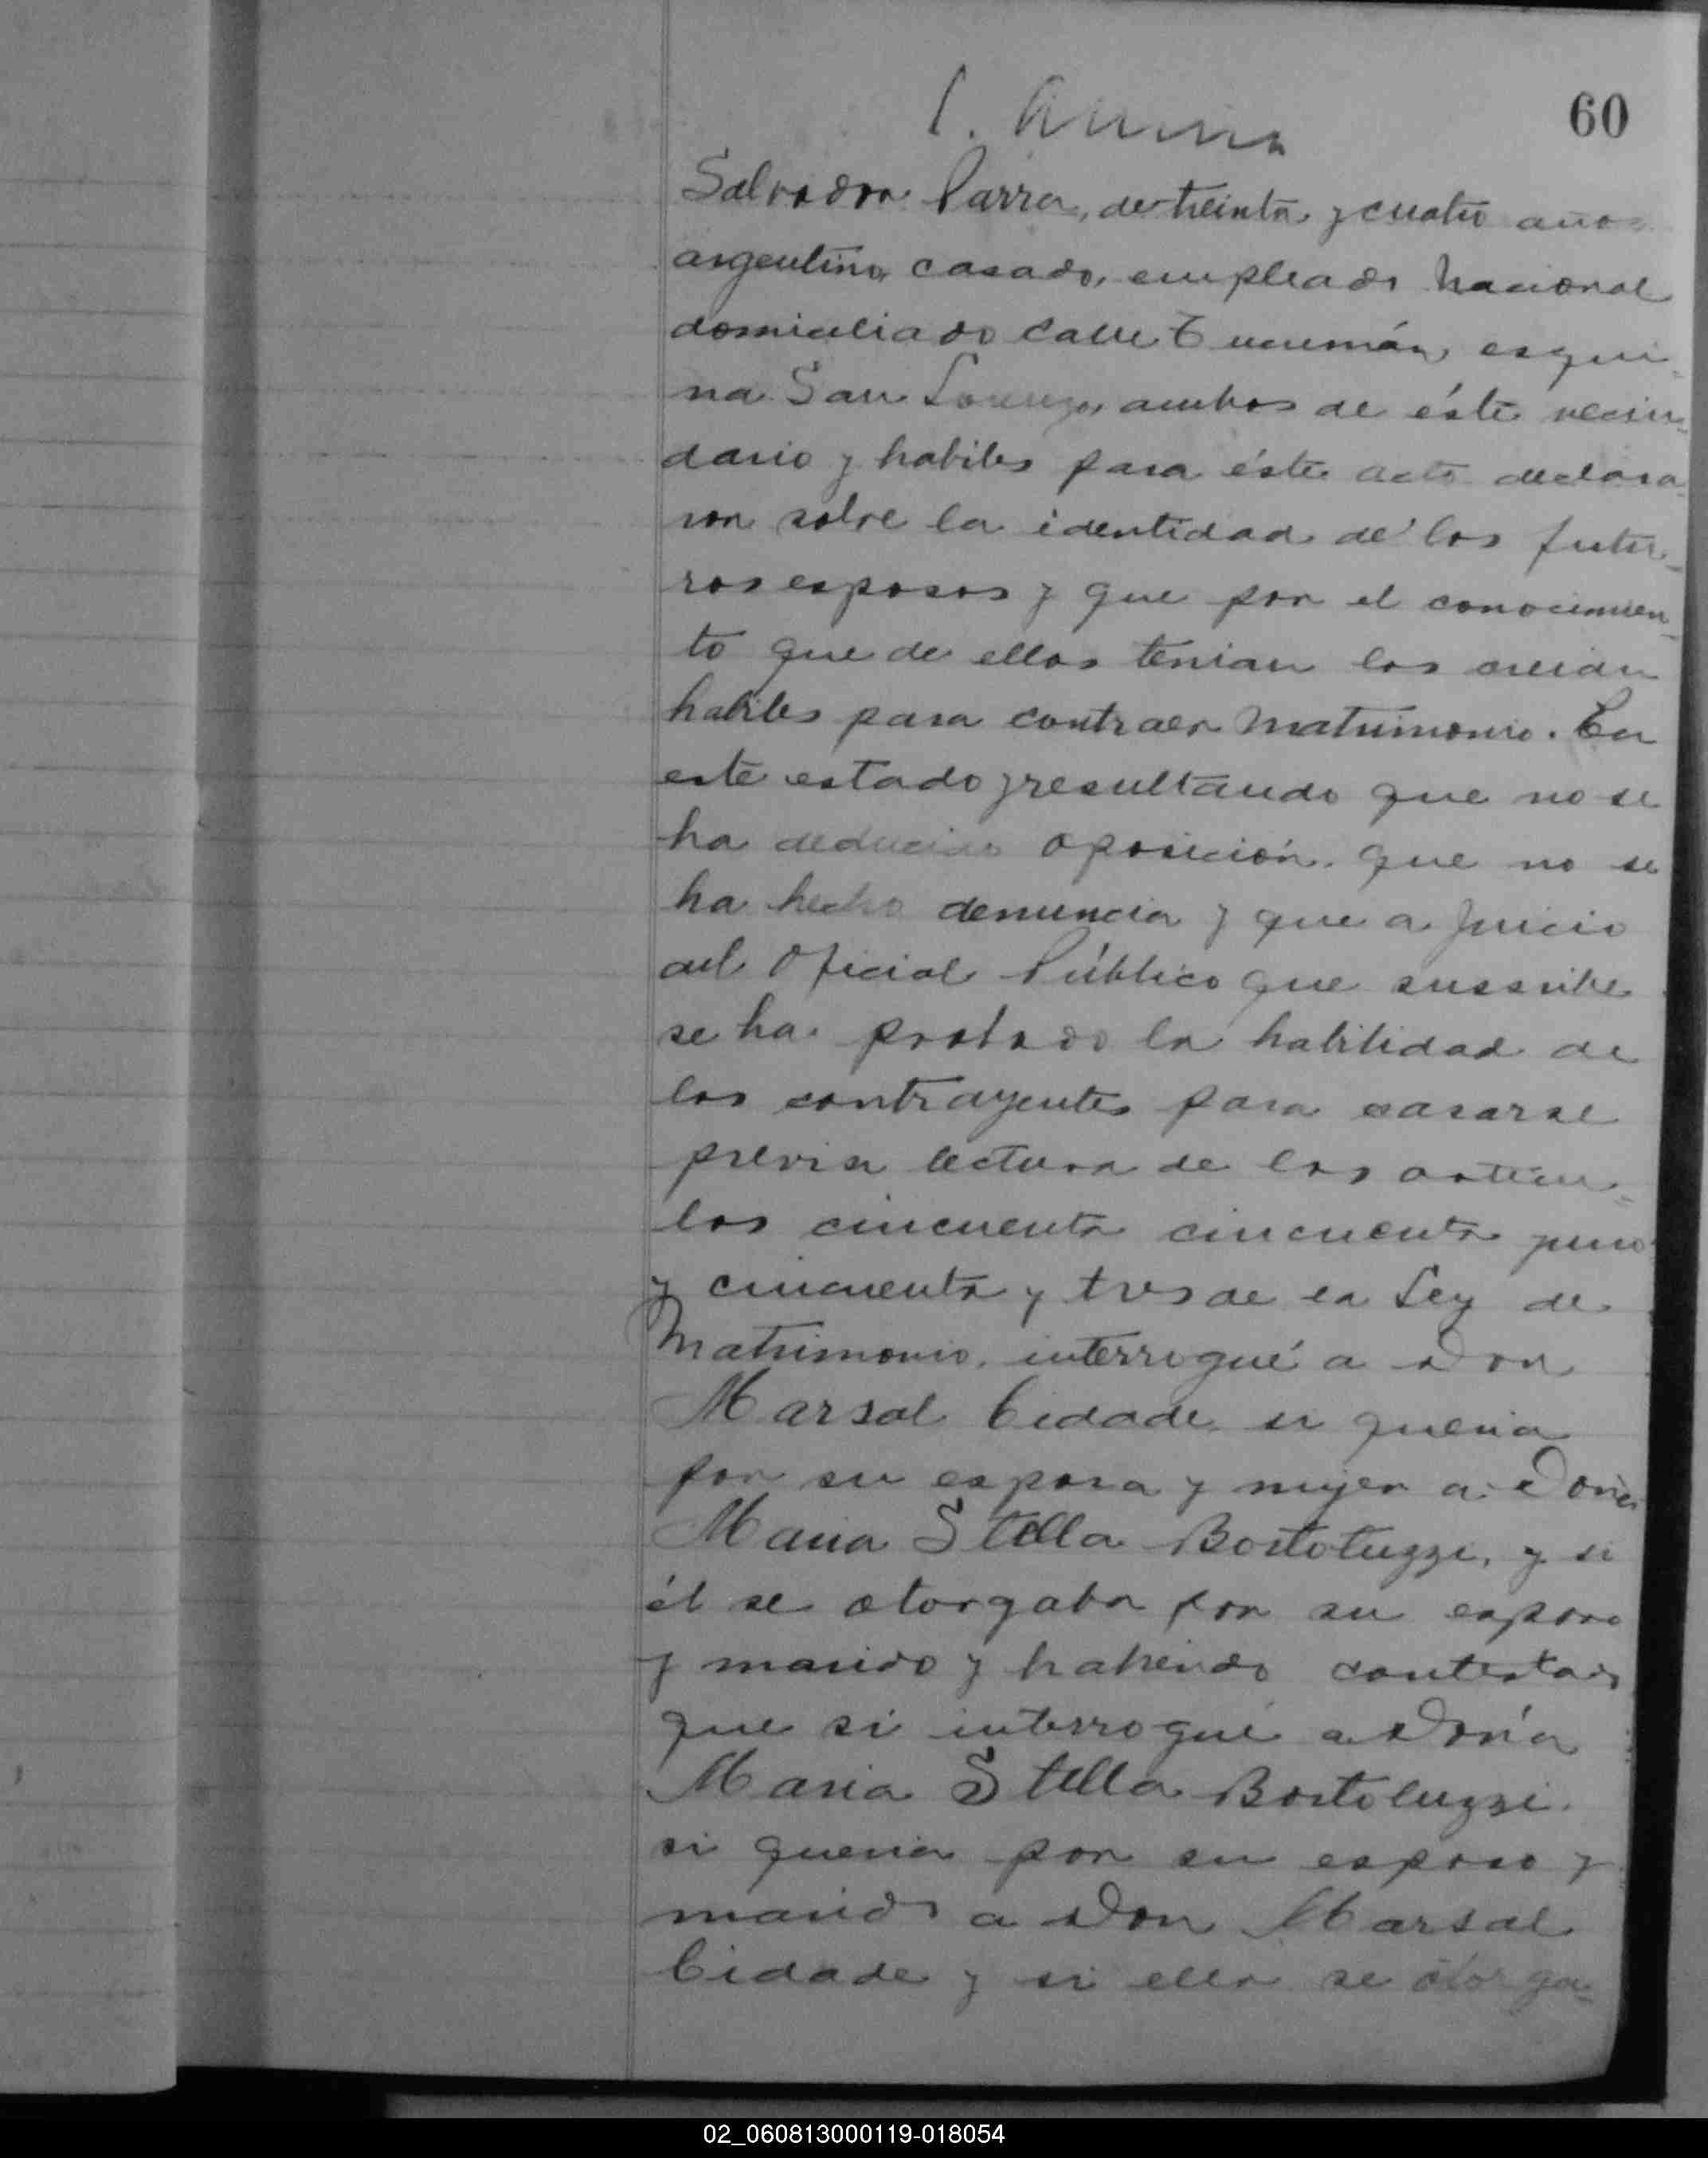 60
Salvador Parra, de treinta y cuatro años
argentino, casado, empleado Nacional
domiciliado calle Tucumán, esqui-
na San Lorenzo, ambos de éste vecin-
dario y habiles para éste acto declara-
ron sobre la identidad de los futu-
ros esposos y que por el conocimien-
to que de ellos tenian los creian
habiles para contraer Matrimonio. En
este estado y resultando que no se
ha deducido oposición, que no se
ha hecho denuncia y que a juicio
del Oficial Público que suscribe
se ha probado la habilidad de
los contrayentes para casarse
previa lectura de los articu-
los cincuenta cincuenta y uno
y cincuenta y tres de la Ley de
Matrimonio, interrogué a Don
Marsal Cidade, si queria
por su esposa y mujer a Doña
Maria Stella Bortoluzzi, y si
él se otorgaba por su esposo
y marido y habiendo contestado
que si interrogué a Doña
Maria Stella Bortoluzzi.
si queria por su esposo y
marido a Don Marsal
Cidade y si ella se otorga-
02_060813000119-018054